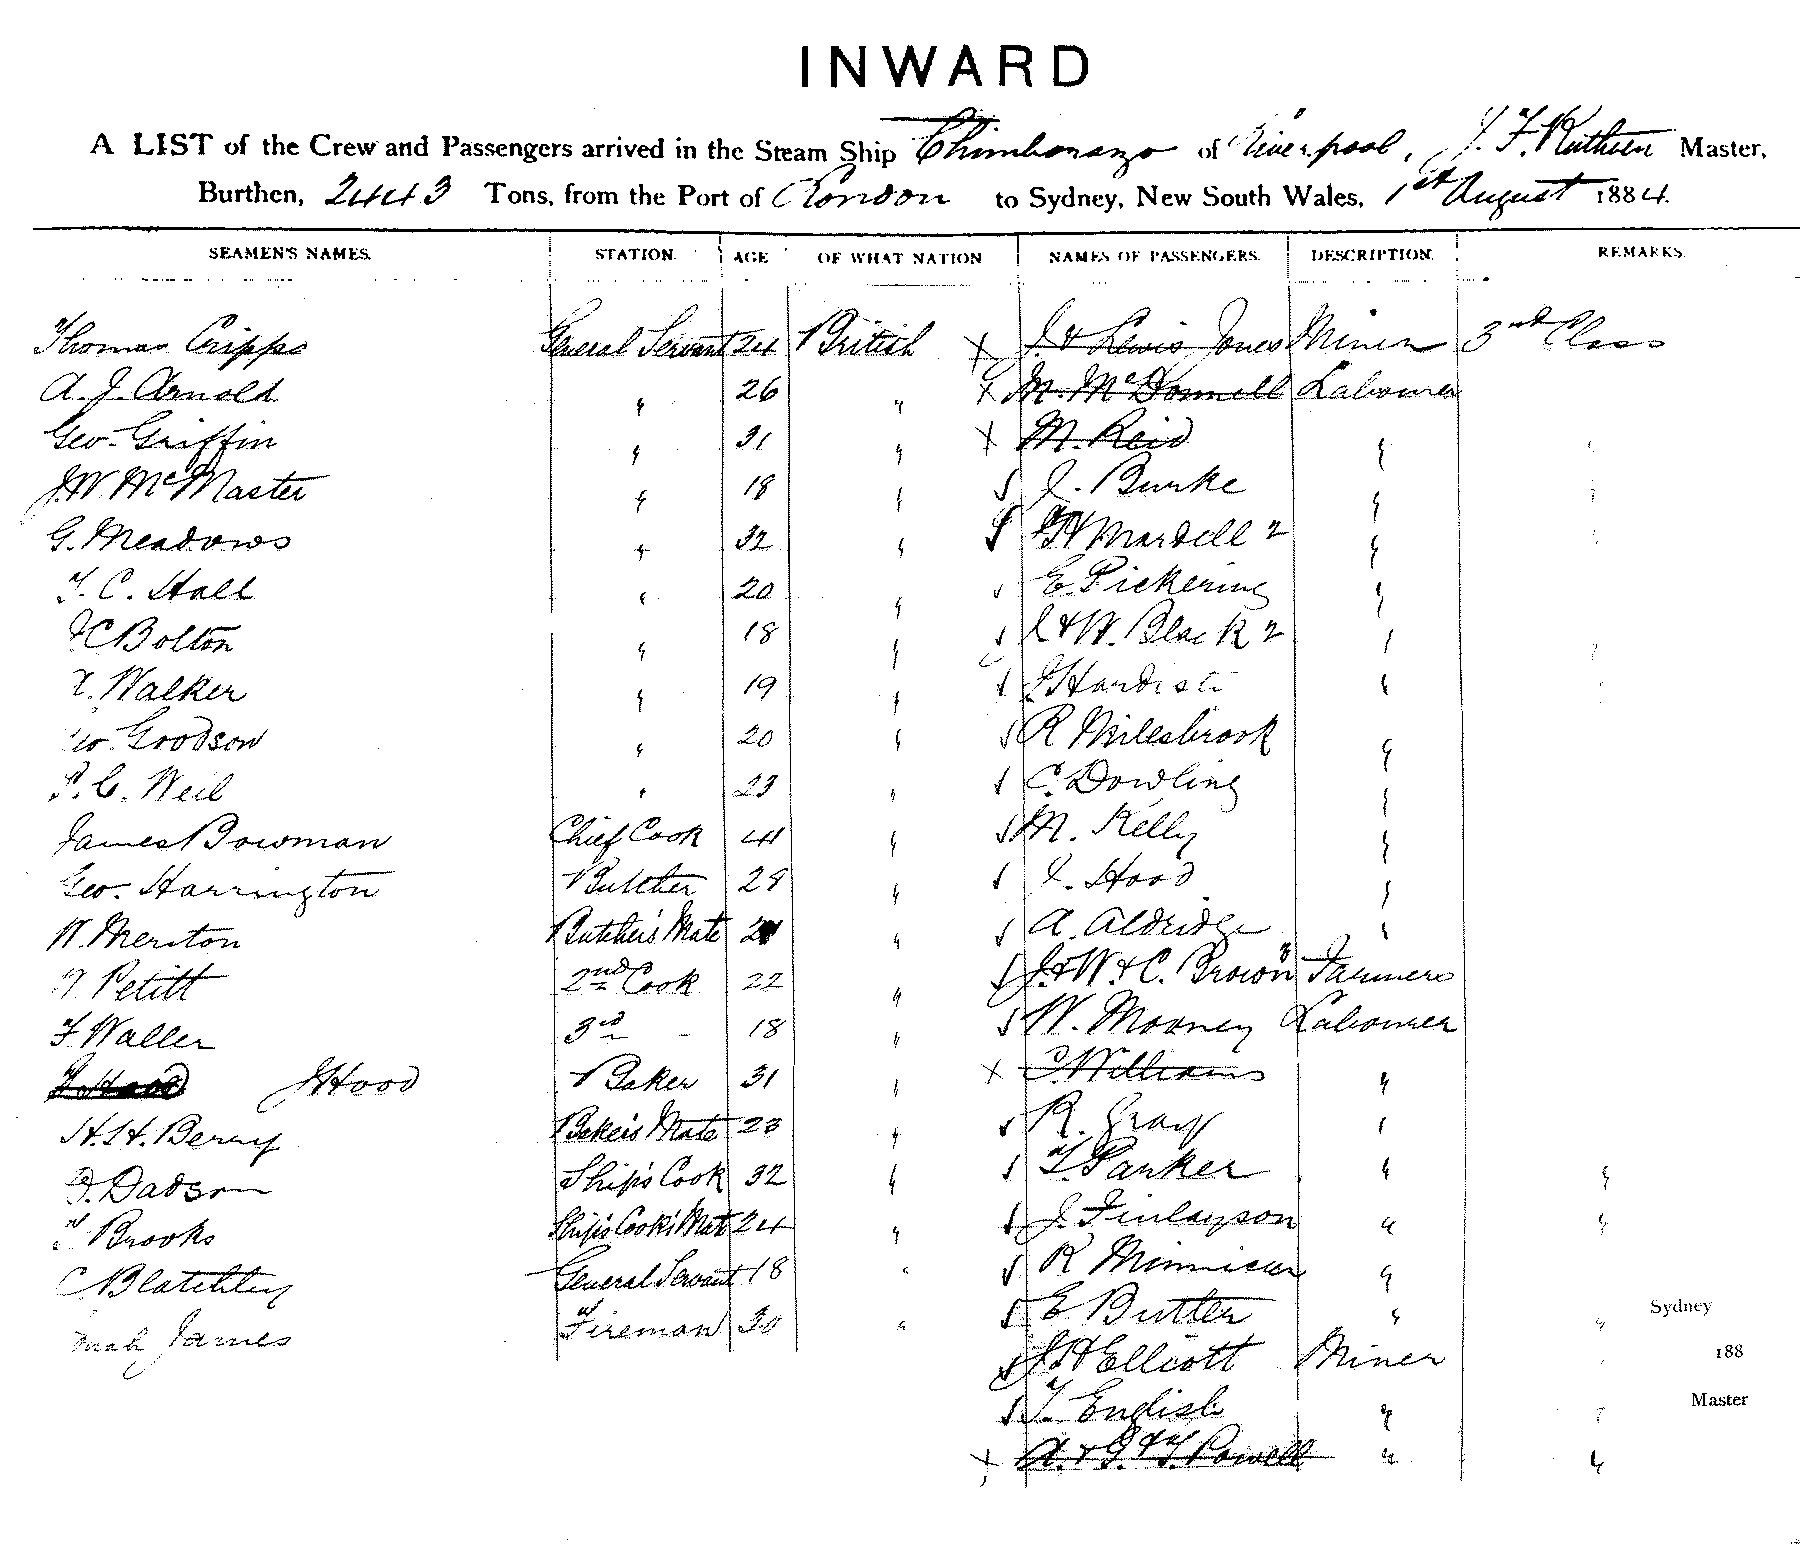 INWARD
A LIST of the Crew and Passengers arrived in the Steam Ship Chimborazo of Liverpool, J. F. Ruthven Master,
Burthen, 2443 Tons, from the Port of London to Sydney, New South Wales, 1st August 1884.
SEAMEN'S NAMES. STATION. AGE OF WHAT NATION NAMES OF PASSENGERS. DESCRIPTION. REMARKS.
Thomas Cripps General Servant 24 British X J. & Lewis Jones Miner 3rd Class
A. J. Arnold " 26 " X M. McDonnell Labourer
Geo. Griffin " 31 " X M. Reid "
J. W. McMaster " 18 " J. Burke "
G. Meadows " 32 " Mardell 2 "
T. C. Hall " 20 " E. Pickering "
C Bolton " 18 " & W. Black 2 "
Walker " 19 " "
Goodson " 20 " R Milesbrook "
Weil " 23 " C. Dowling "
James Bowman Chief Cook 41 " M. Kelly "
Geo. Harrington Butcher 28 " Hood "
W. Meriton Butcher's Mate " A. Aldridge "
Petitt 2nd Cook 22 " J. & W. & C. Brown 3 Farmers
F Waller 3rd " 18 " W. Mooney Labourer
J Hood Baker 31 " X Williams "
H. H. Berry Baker's Mate 23 " R. Gray "
Dadson Ship's Cook 32 " T. Parker " "
Brooks Ship's Cook's Mate 24 " J. Finlayson " "
C Blatchley General Servant 18 " R "
James Fireman 30 " E Butler " " Sydney
J H Ellicott Miner 188
T. English " " Master
X A. & G. & T. Powell " "